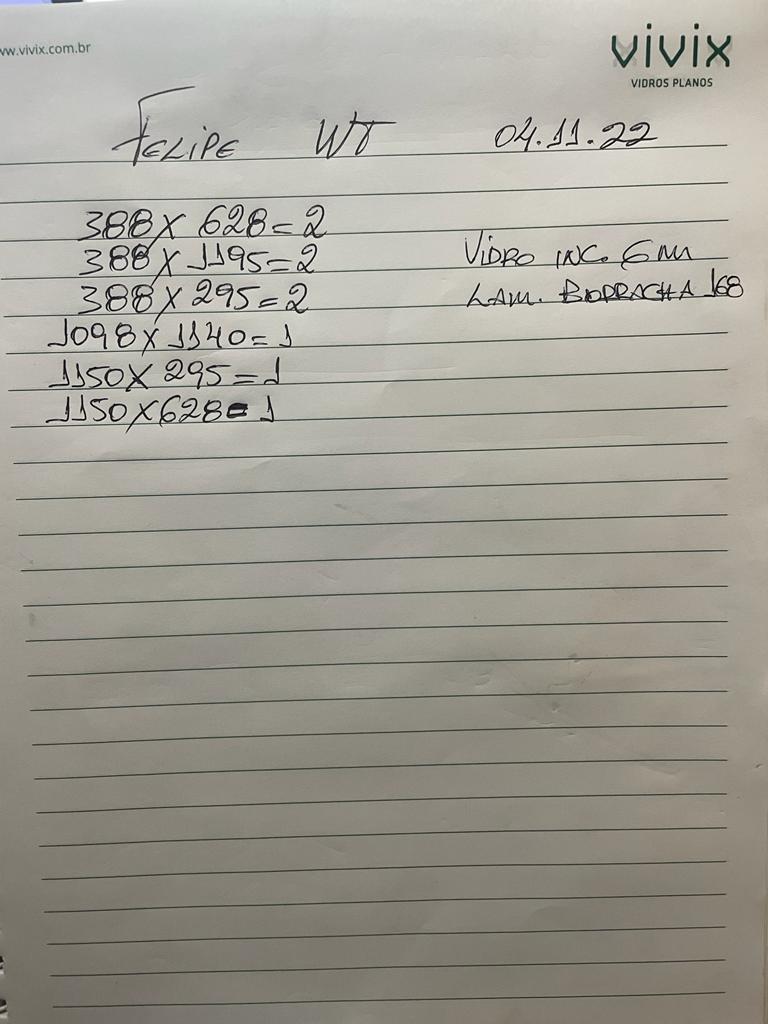 ww.vivix.com.br
vivix
VIDROS PLANOS
FELIPE WT 04.11.22
388 X 628 = 2
388 X 1195 = 2
388 X 295 = 2
1098 X 1140 = 1
1150 X 295 = 1
1150 X 628 = 1
VIDRO INC. 6 M
LAM. BORRACHA 168